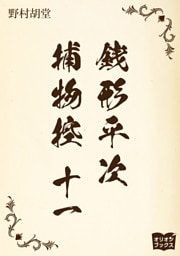 野村胡堂
銭形平次
捕物控 十一
オリオン
ブックス